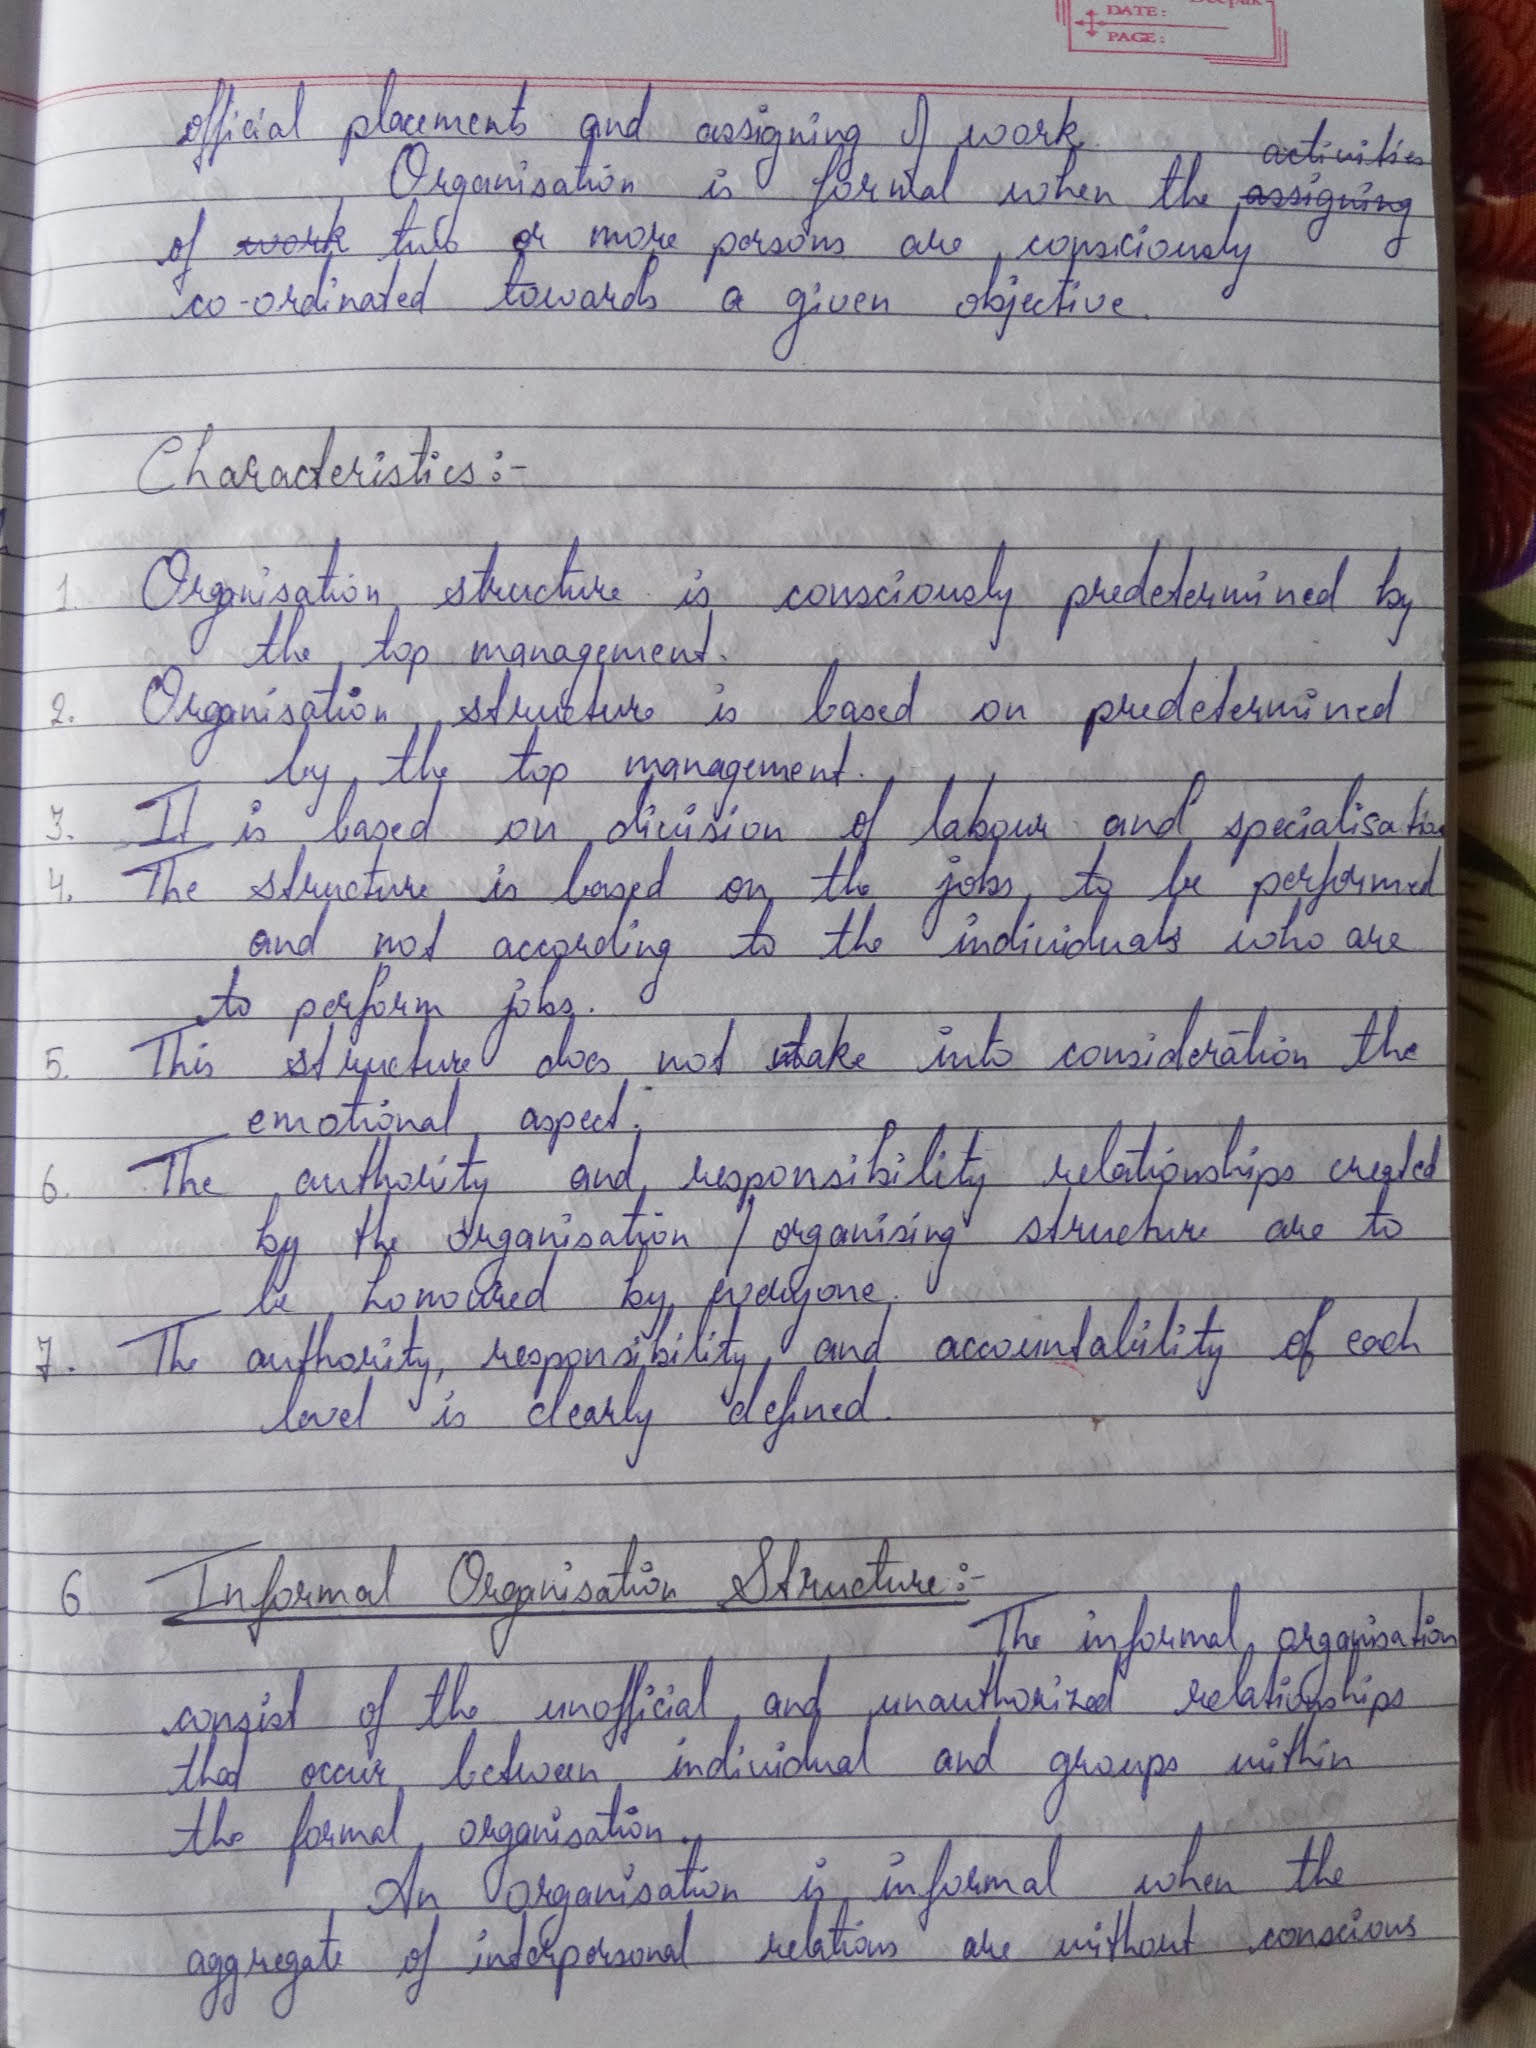 Deepak
DATE:
PAGE:
official placements and assigning of work.
activities
Organisation is formal when the assigning
of work two or more persons are consiciously
co-ordinated towards a given objective.
Characteristics:-
1. Organisation structure is consciously predetermined by
the top management.
2. Organisation structure is based on predetermined
by the top management.
3. It is based on division of labour and specialisation
4. The structure is based on the jobs to be performed
and not according to the individuals who are
to perform jobs.
5. This structure does not take into consideration the
emotional aspect.
6. The authority and responsibility relationships created
by the organisation / organising structure are to
be honoured by everyone.
7. The authority, responsibility and accountability of each
level is clearly defined.
6 Informal Organisation Structure:-
The informal organisation
consist of the unofficial and unauthorized relationships
that occur between individual and groups within
the formal organisation.
An organisation is informal when the
aggregate of interpersonal relations are without conscious